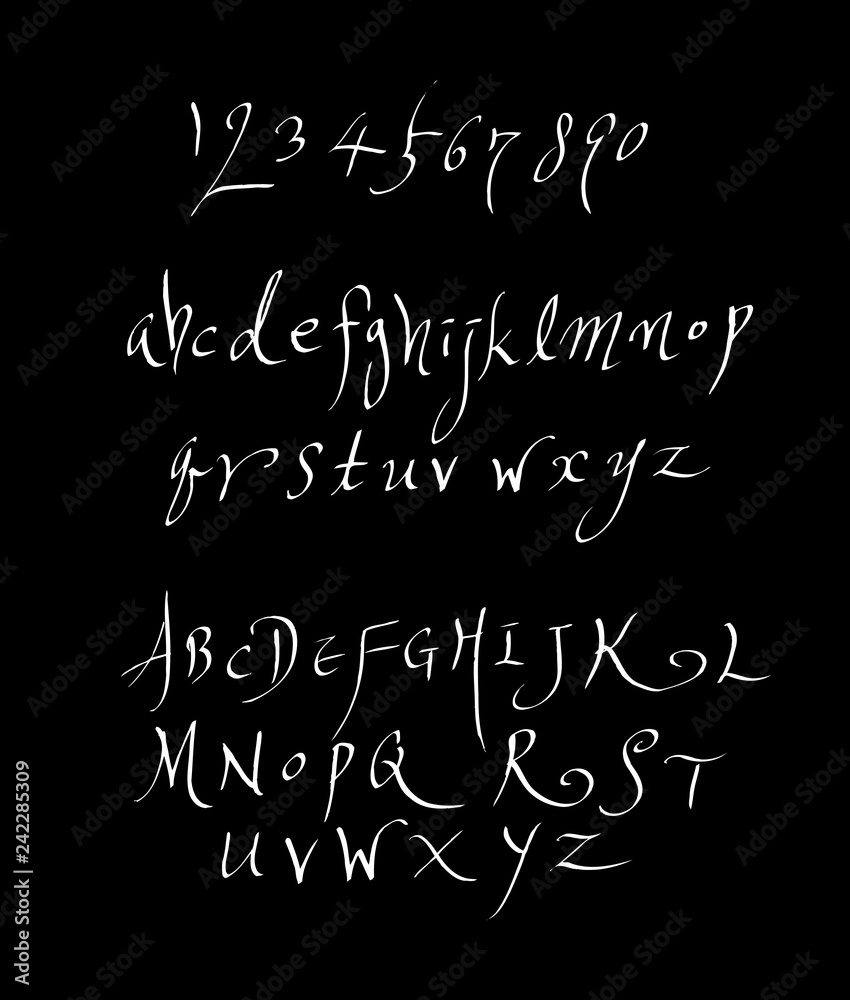 1234567890
abcdefghijklmnop
qrstuvwxyz
ABCDEFGHIJKL
MNOPQRST
UVWXYZ
Adobe Stock | #242285309